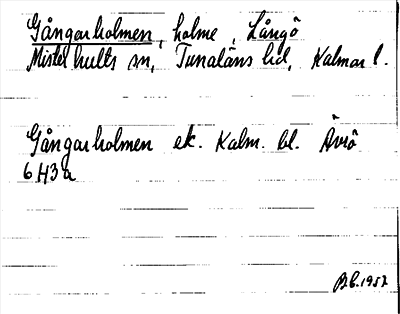 Gångarholmen, holme, Långö
Misterhults sn, Tunaläns hd, Kalmar l.
Gångarholmen ek. Kalm. bl. Ävrö
6 H3a
B.E. 1957